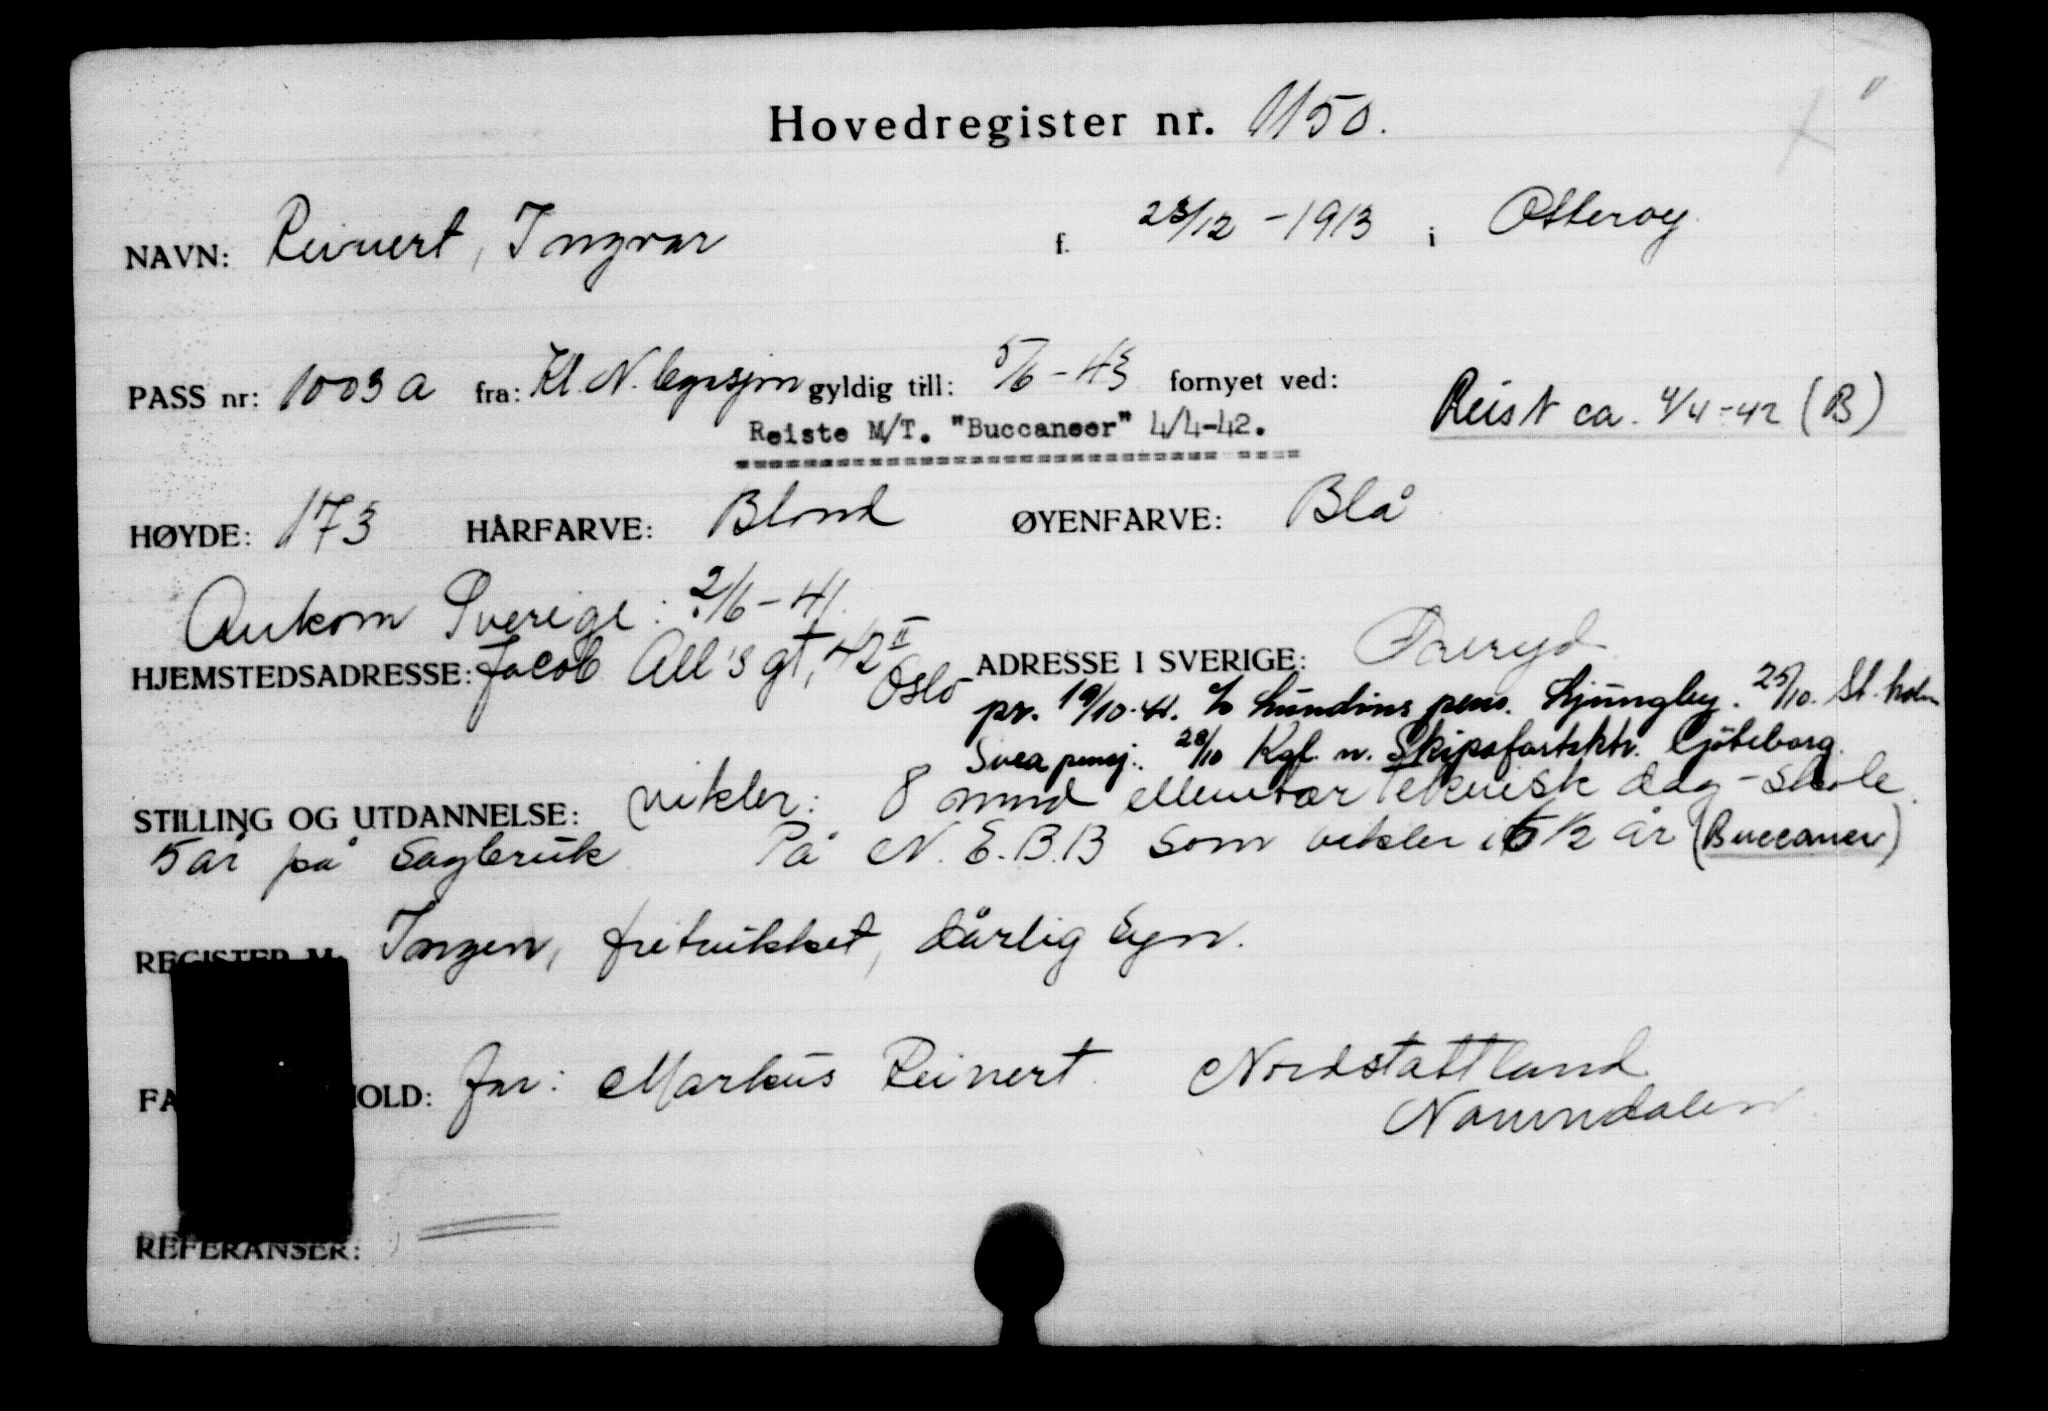 Hovedregister nr. 1150.
NAVN: Reinert, Ingvar f. 23/12 - 1913 i Otterøy
PASS nr: 1003 a fra: Kl. N. legasjon gyldig till: 5/6 - 43 fornyet ved:
Reist ca. 4/4-42 (B)
Reiste M/T. "Buccaneer" 4/4-42.
HØYDE: 173 HÅRFARVE: Blond ØYENFARVE: Blå
Ankom Sverige: 2/6 - 41.
HJEMSTEDSADRESSE: Jacob All's gt, 42 II Oslo ADRESSE I SVERIGE: Øreryd
pr. 19/10-41. c/o Lundins pens. Ljungby. 25/10. St.holm
Svea pensj. 28/10 Kgl. n. Skipsfartsktr. Göteborg.
STILLING OG UTDANNELSE: vikler: 8 mnd elementær teknisk dag-skole.
5 år på Sagbruk På N.E.B.B som vikler i 5 1/2 år (Buccaneer)
REGISTER M. Ingen, fritvikket, dårlig Syn.
FA HOLD: far: Markus Reinert. Nordstattland
Namndalen
REFERANSER: